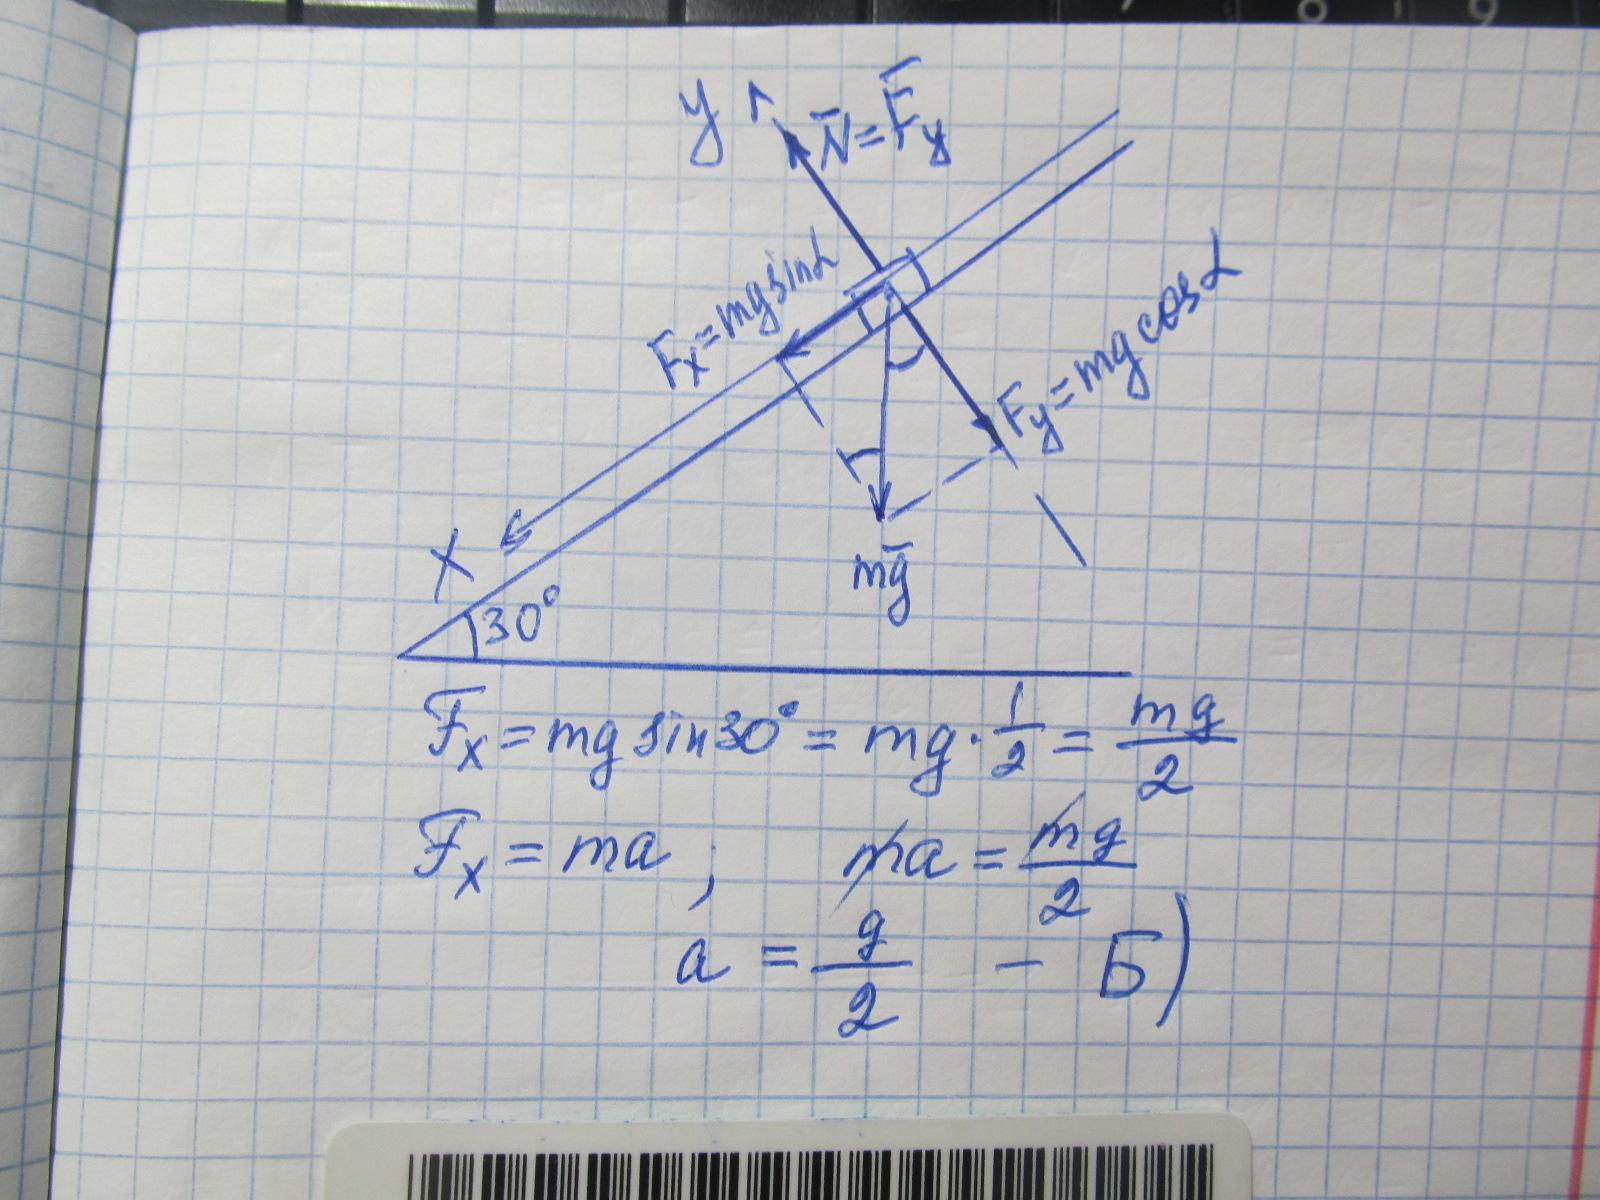 y N̅ = F̅y
Fx = mg sinα
Fy = mg cosα
X
mg̅
30°
Fx = mg sin30° = mg · 1/2 = mg/2
Fx = ma ; ma = mg/2
a = g/2 - Б)